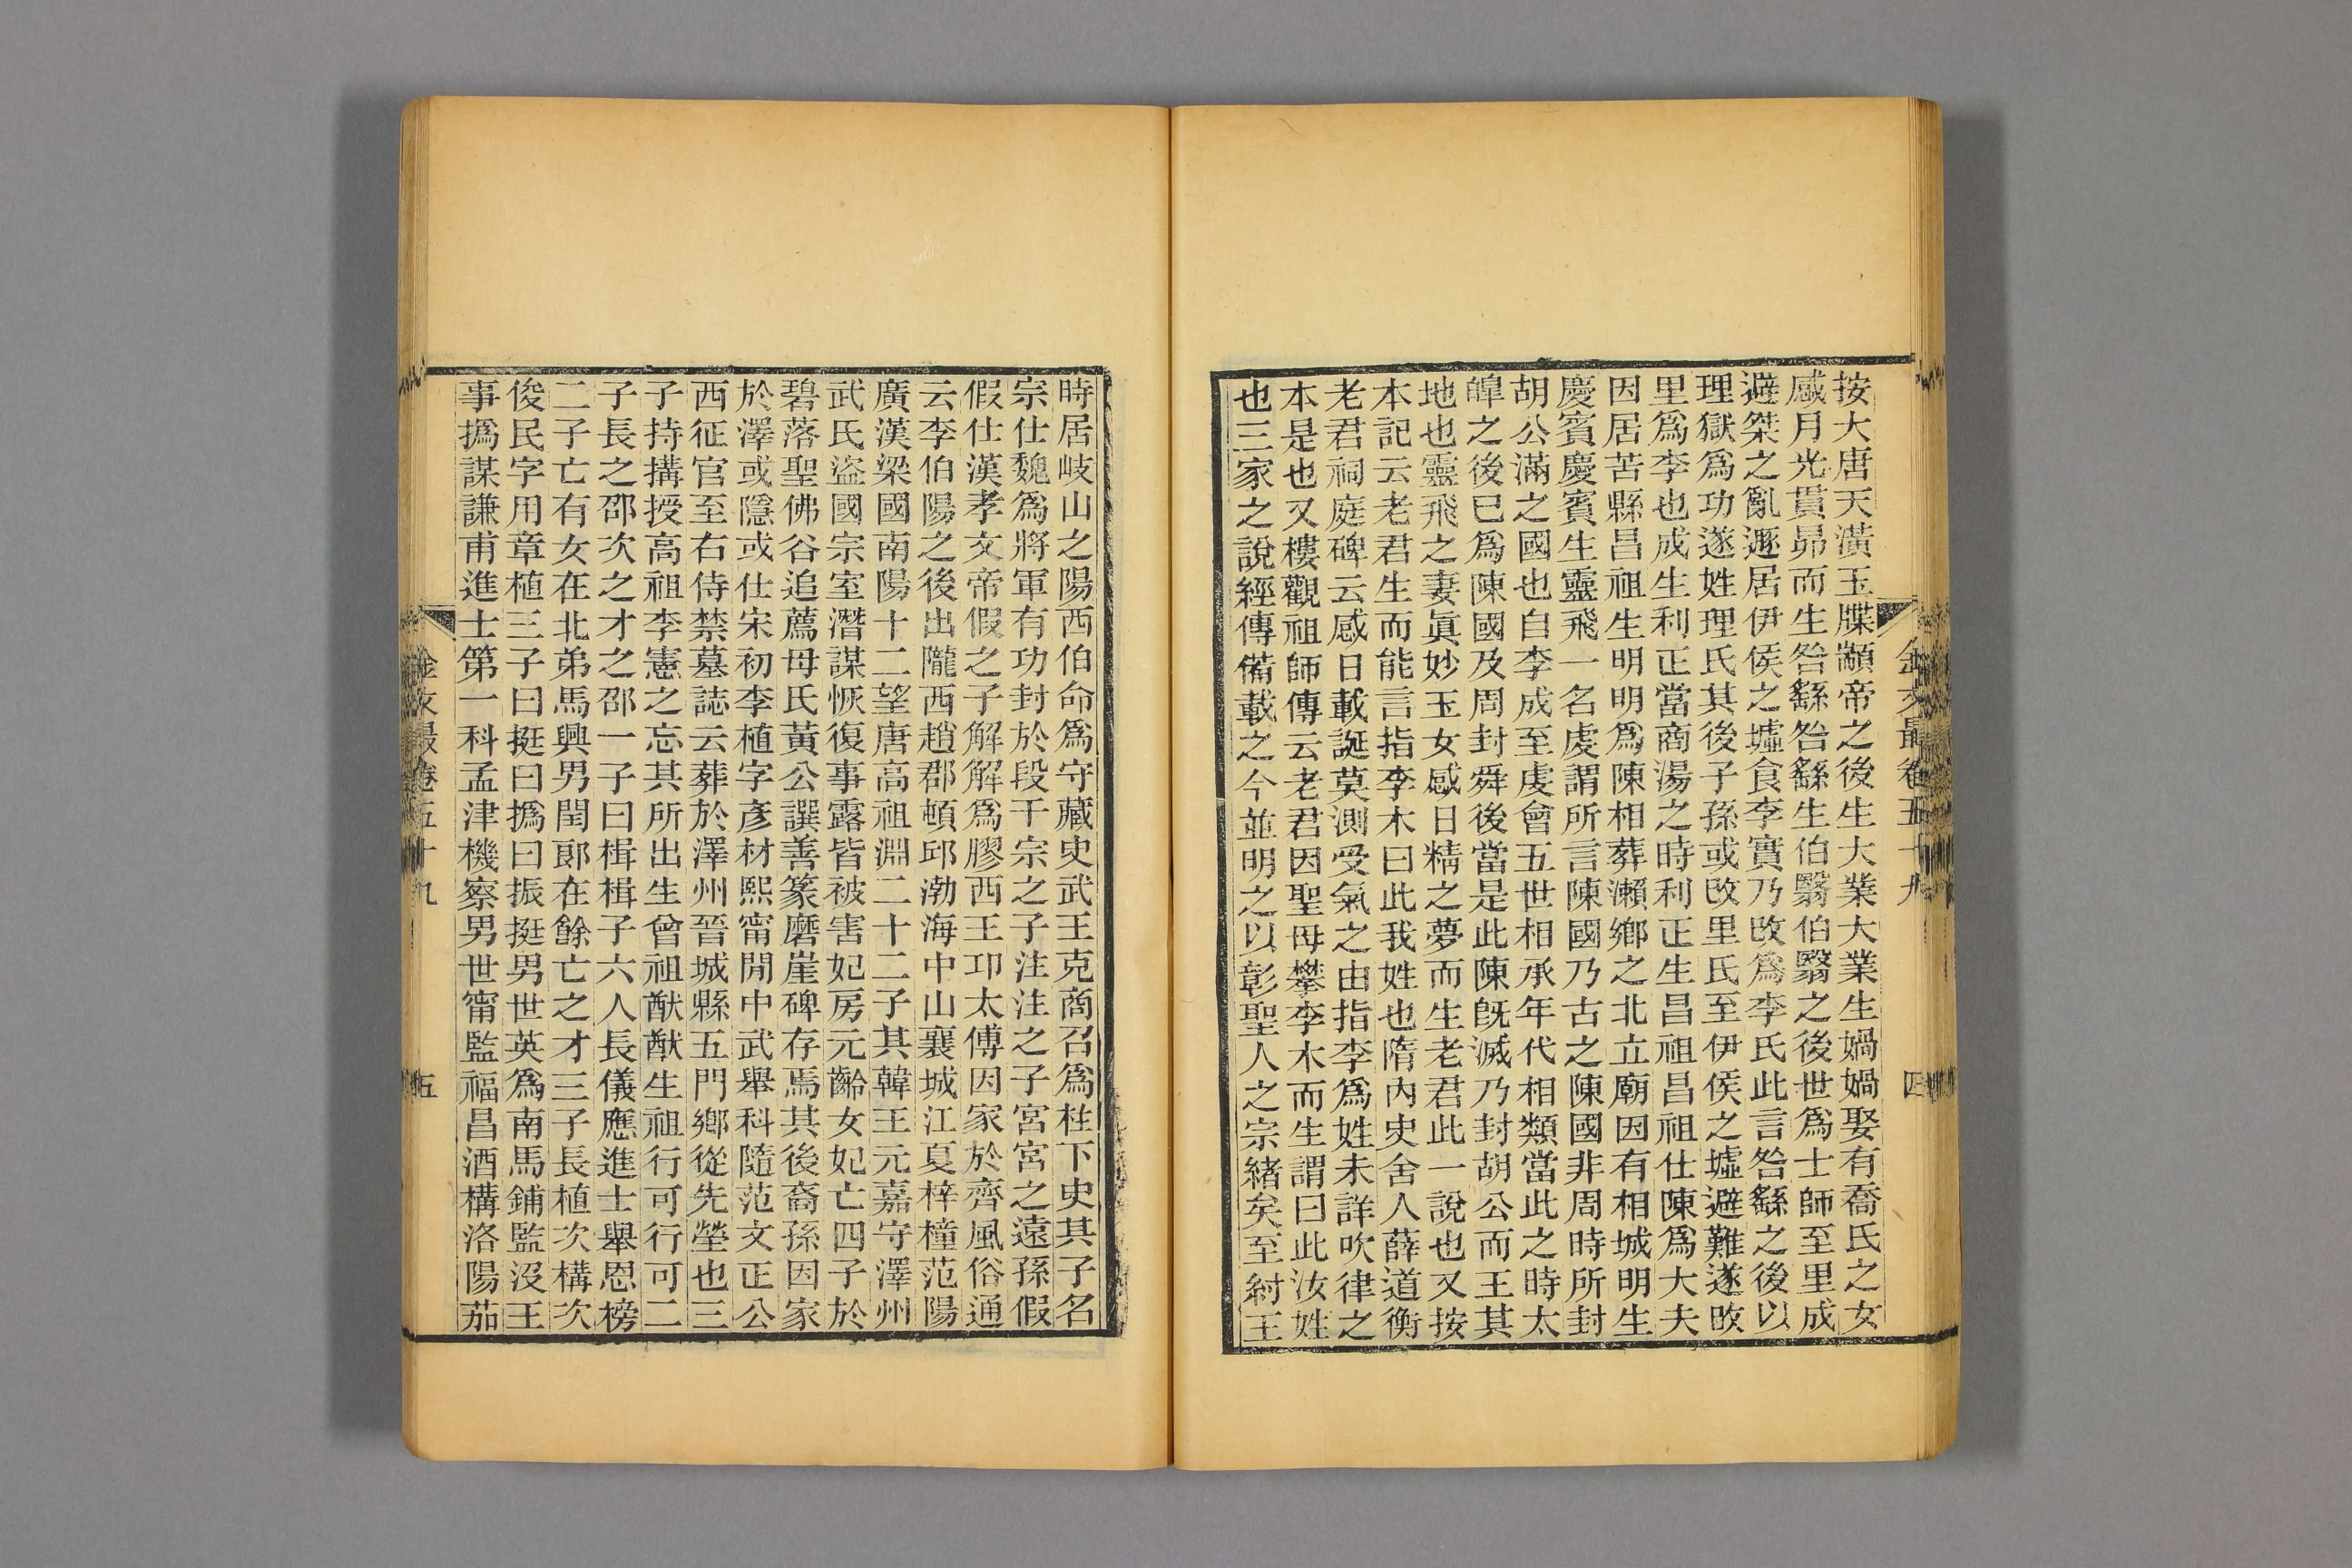 金文最卷五十九
四
按大唐天潢玉牒顓帝之後生大業大業生媧媧娶有喬氏之女
感月光貫昴而生咎繇咎繇生伯翳伯翳之後世爲士師至里成
避桀之亂遯居伊侯之墟食李實乃改爲李氏此言咎繇之後以
理獄爲功遂姓理氏其後子孫或改里氏至伊侯之墟避難遂改
里爲李也成生利正當商湯之時利正生昌祖昌祖仕陳爲大夫
因居苦縣昌祖生明明爲陳相葬瀨鄉之北立廟因有相城明生
慶賓慶賓生靈飛一名虔謂所言陳國乃古之陳國非周時所封
胡公滿之國也自李成至虔會五世相承年代相類當此之時太
皥之後巳爲陳國及周封舜後當是此陳旣滅乃封胡公而王其
地也靈飛之妻眞妙玉女感日精之夢而生老君此一說也又按
本記云老君生而能言指李木曰此我姓也隋内史舍人薛道衡
老君祠庭碑云感日載誕莫測受氣之由指李爲姓未詳吹律之
本是也又樓觀祖師傳云老君因聖母攀李木而生謂曰此汝姓
也三家之說經傳備載之今並明之以彰聖人之宗緒矣至紂王
時居岐山之陽西伯命爲守藏史武王克商召爲柱下史其子名
宗仕魏爲將軍有功封於段干宗之子注注之子宮宮之遠孫假
假仕漢孝文帝假之子解解爲膠西王卭太傅因家於齊風俗通
云李伯陽之後出隴西趙郡頓邱渤海中山襄城江夏梓橦范陽
廣漢梁國南陽十二望唐高祖淵二十二子其韓王元嘉守澤州
武氏盜國宗室潛謀恢復事露皆被害妃房元齡女妃亡四子於
碧落聖佛谷追薦母氏黃公譔善篆磨崖碑存焉其後裔孫因家
於澤或隱或仕宋初李植字彥材熙甯閒中武舉科隨范文正公
西征官至右侍禁墓誌云葬於澤州晉城縣五門鄉從先塋也三
子持搆授高祖李憲之忘其所出生曾祖猷猷生祖行可行可二
子長之邵次之才之邵一子曰楫楫子六人長儀應進士舉恩榜
二子亡有女在北弟馬興男閏郎在餘亡之才三子長植次構次
俊民字用章植三子曰挺曰撝曰振挺男世英爲南馬鋪監沒王
事撝謀謙甫進士第一科孟津機察男世甯監福昌酒構洛陽茄
金文最卷五十九
五